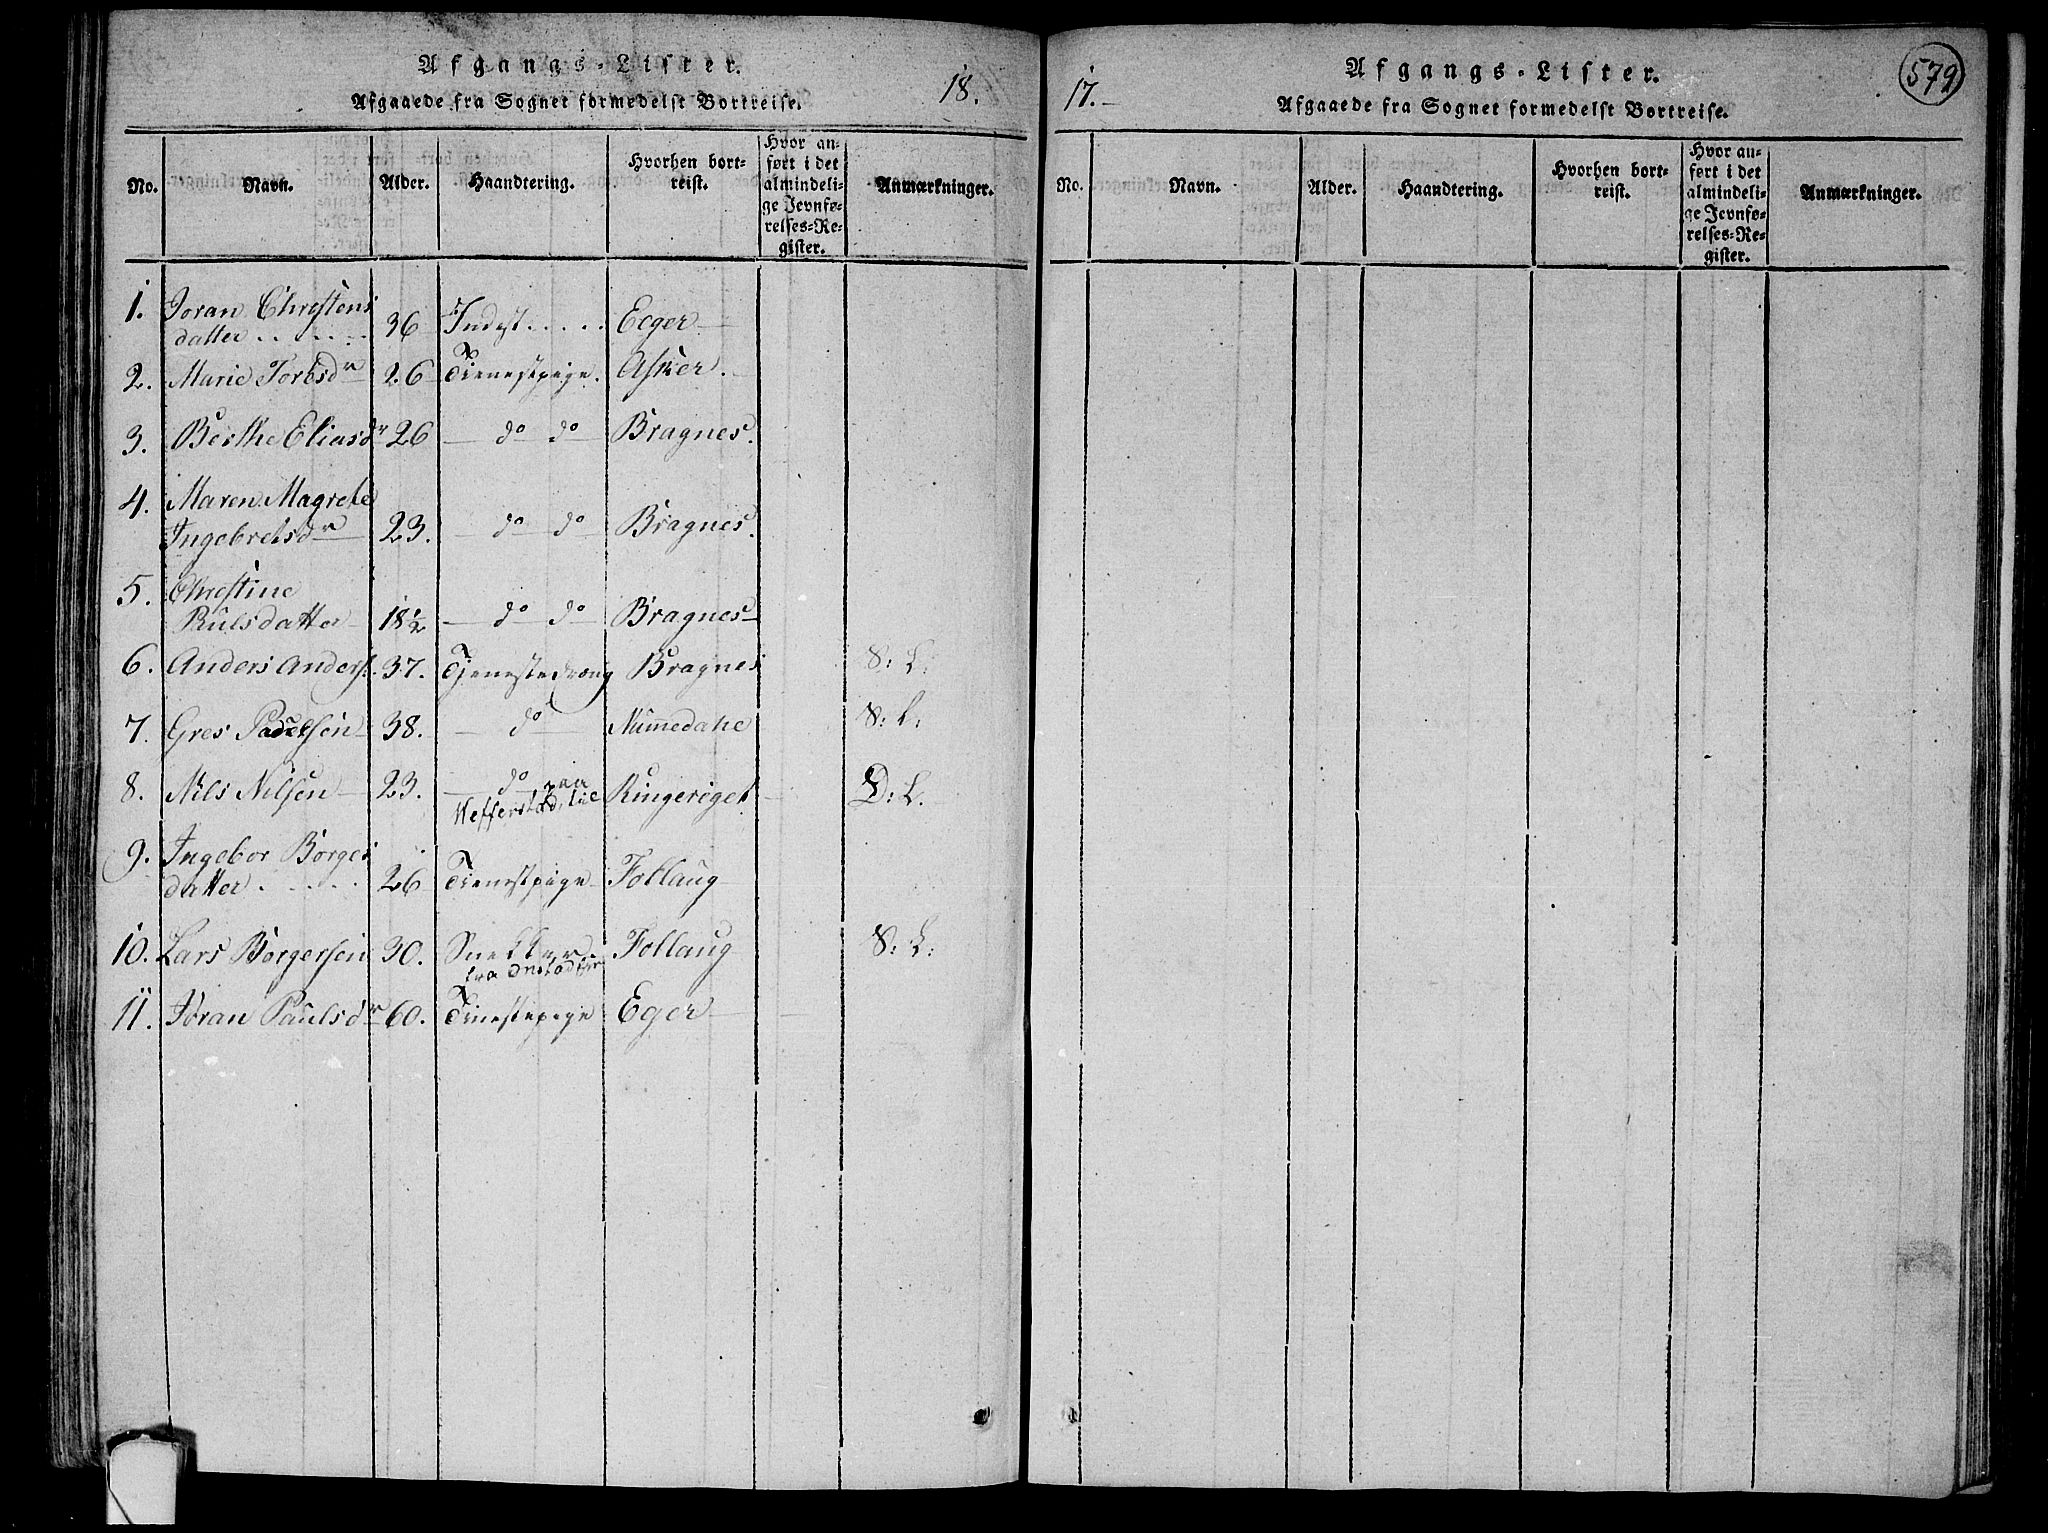 Afgangs-Lister.
18.
Afgaaede fra Sognet formedelst Bortreise.
No. Navn. Alder. Haandtering. Hvorhen bort-reist. Hvor an-ført i det almindeli-ge Jevnfø-relses-Re-gister. Anmærkninger.
1. Joran Christens
datter . . . . . 36 Indest . . . . . Ecger
2. Marie Torbsdr 26 Tienestpige. Asker.
3. Berthe Eliasdr 26 do do Bragnes.
4. Maren Magrete
Ingebretsdr 23. do do Bragnes.
5. Christine
Pulsdatter 18 1/2 do do Bragnes
6. Anders Anders. 37. Tjenestedreng Bragnes S: L:
7. Gres Paulsen 38. do Nummedahe S: L:
8. Nils Nilsen 23. do paa Ringeriget D: L.
9. Ingebor Borges
datter . . . . . 26 Tienestpige Follaug
10. Lars Borgersen 30. Snekker Follaug S: L:
fra
11. Joran Paulsdr 60. Tinestepige Eger
17.
Afgangs-Lister.
579
Afgaaede fra Sognet formedelst Bortreise.
No. Navn. Alder. Haandtering. Hvorhen bort-reist. Hvor an-ført i det almindeli-ge Jevnfø-relses-Re-gister. Anmærkninger.